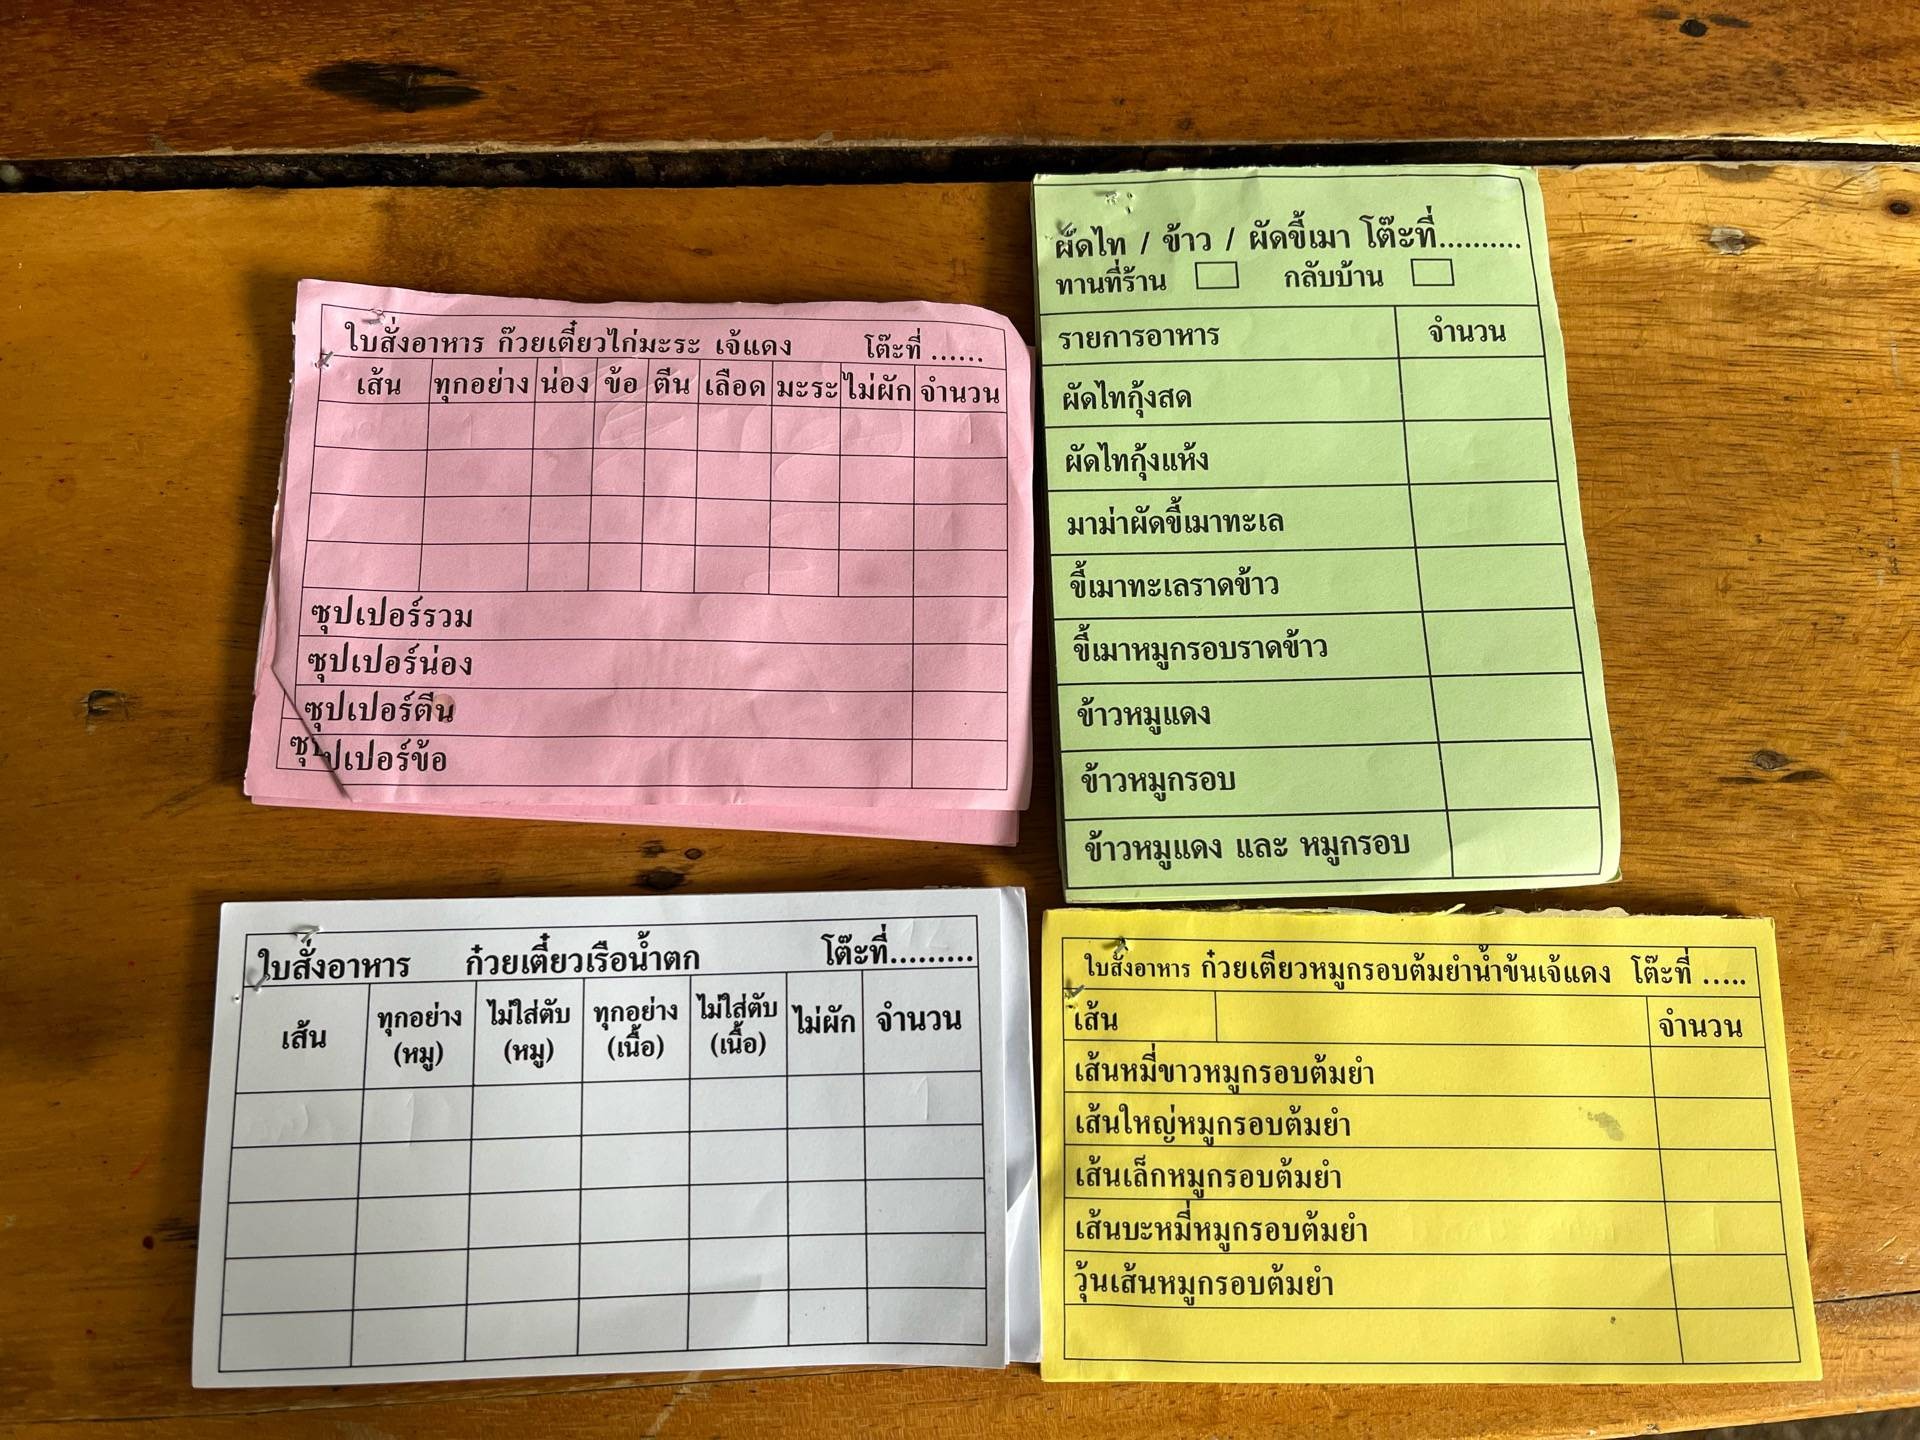 ใบสั่งอาหาร ก๊วยเตี๋ยวไก่มะระ เจ้แดง โต๊ะที่ ......
เส้น ทุกอย่าง น่อง ข้อ ตีน เลือด มะระ ไม่ผัก จำนวน
ซุปเปอร์รวม
ซุปเปอร์น่อง
ซุปเปอร์ตีน
ซุปเปอร์ข้อ
ผัดไท / ข้าว / ผัดขี้เมา โต๊ะที่..........
ทานที่ร้าน กลับบ้าน
รายการอาหาร จำนวน
ผัดไทกุ้งสด
ผัดไทกุ้งแห้ง
มาม่าผัดขี้เมาทะเล
ขี้เมาทะเลราดข้าว
ขี้เมาหมูกรอบราดข้าว
ข้าวหมูแดง
ข้าวหมูกรอบ
ข้าวหมูแดง และ หมูกรอบ
ใบสั่งอาหาร ก๋วยเตี๋ยวเรือน้ำตก โต๊ะที่.........
เส้น ทุกอย่าง (หมู) ไม่ใส่ตับ (หมู) ทุกอย่าง (เนื้อ) ไม่ใส่ตับ (เนื้อ) ไม่ผัก จำนวน
ใบสั่งอาหาร ก๋วยเตียวหมูกรอบต้มยำน้ำข้นเจ้แดง โต๊ะที่ .....
เส้น จำนวน
เส้นหมี่ขาวหมูกรอบต้มยำ
เส้นใหญ่หมูกรอบต้มยำ
เส้นเล็กหมูกรอบต้มยำ
เส้นบะหมี่หมูกรอบต้มยำ
วุ้นเส้นหมูกรอบต้มยำ